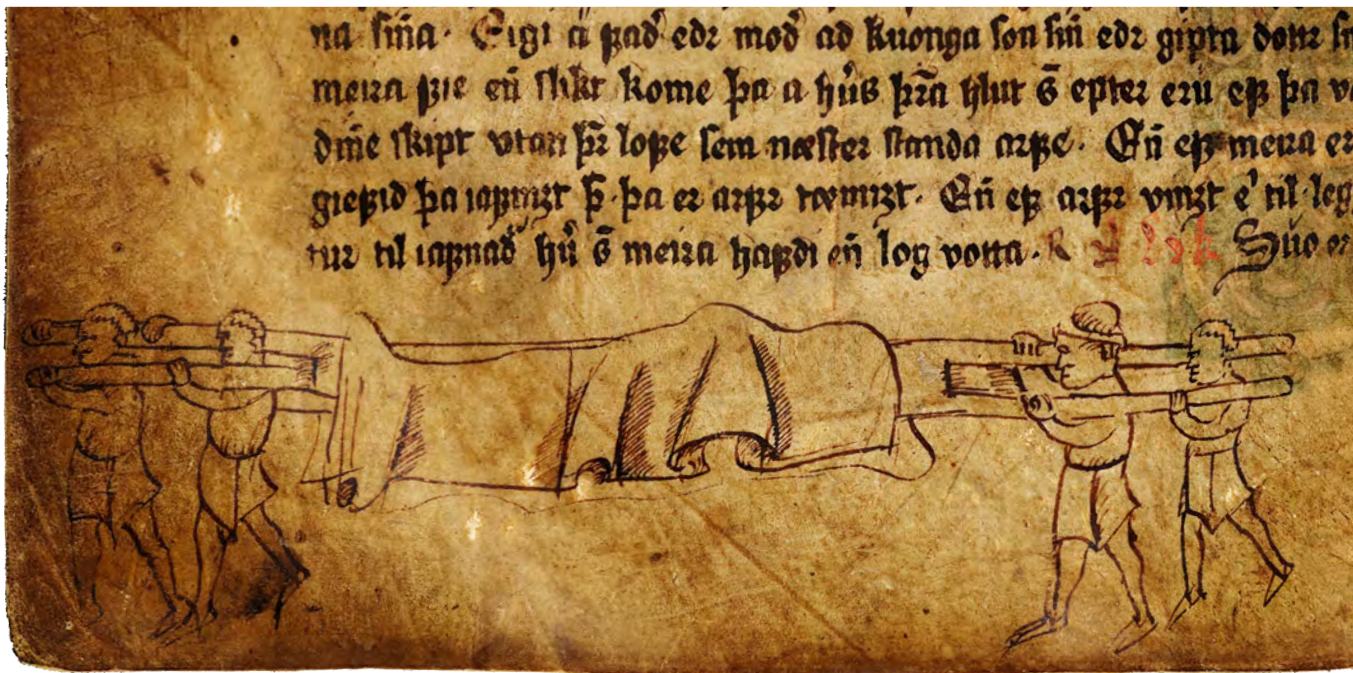 na sina. Eigi a fad͛ edr mod͛ ad kuonga son sin̄ edr gipta dottr
meira fie en̄ slikt kome þa a hu͛s þr̄a hlut s̄ epter eru ef þa
dm̄e skipt vtan þr̄ lofe sem næster standa arfe. En̄ ef meira er
giefid þa iafnizt þ̄. þa er arfr tæmizt. En̄ ef arfr vinzt e͛ til leg
tur til iafnad͛ hu͛ s̄ meira hafdi en̄ log votta. Suo er